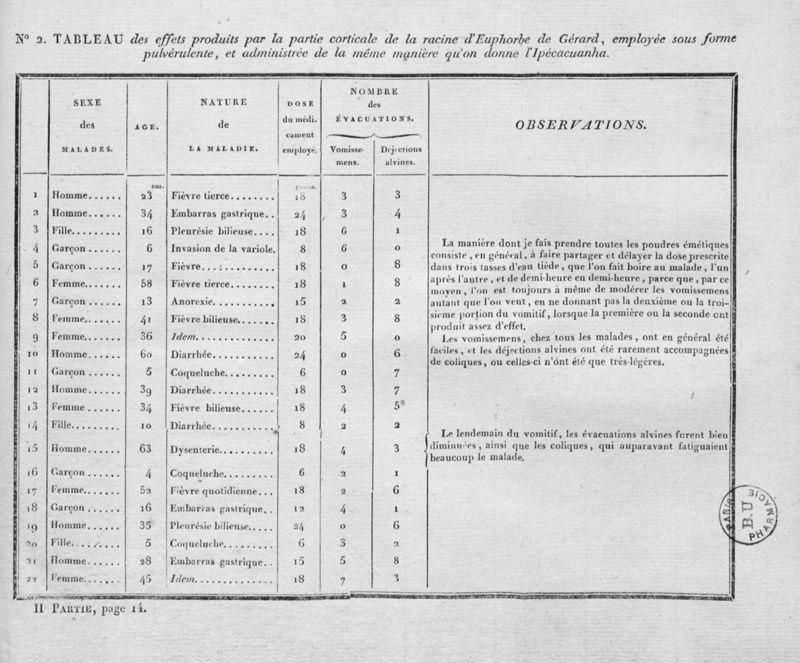 Nº 2. TABLEAU des effets produits par la partie corticale de la racine d'Euphorbe de Gérard, employée sous forme
pulvérulente, et administrée de la même manière qu'on donne l'Ipécacuanha.
SEXE des MALADES. AGE. NATURE de LA MALADIE. DOSE du médicament employé. NOMBRE des ÉVACUATIONS. OBSERVATIONS.
Vomissemens. Déjections alvines.
ans. grains.
1 Homme...... 23 Fièvre tierce........ 18 3 3
2 Homme...... 34 Embarras gastrique.. 24 3 4
3 Fille......... 16 Pleurésie bilieuse.... 18 6 1
4 Garçon...... 6 Invasion de la variole. 8 6 0
5 Garçon...... 17 Fièvre............. 18 0 8
6 Femme...... 58 Fièvre tierce........ 18 1 8
7 Garçon...... 13 Anorexie........... 15 2 2
8 Femme...... 41 Fièvre bilieuse...... 18 3 8
9 Femme...... 36 Idem.............. 20 5 0
10 Homme...... 60 Diarrhée........... 24 0 6
11 Garçon...... 5 Coqueluche......... 6 0 7
12 Homme...... 39 Diarrhée........... 18 3 7
13 Femme...... 34 Fièvre bilieuse...... 18 4 5
14 Fille......... 10 Diarrhée........... 8 2 2
15 Homme...... 63 Dysenterie.......... 18 4 3
16 Garçon...... 4 Coqueluche......... 6 2 1
17 Femme...... 52 Fièvre quotidienne... 18 2 6
18 Garçon...... 16 Embarras gastrique.. 12 4 1
19 Homme...... 35 Pleurésie bilieuse.... 24 0 6
20 Fille......... 5 Coqueluche......... 6 3 2
21 Homme...... 28 Embarras gastrique.. 15 5 8
22 Femme...... 45 Idem.............. 18 7 3
La manière dont je fais prendre toutes les poudres émétiques
consiste, en général, à faire partager et délayer la dose prescrite
dans trois tasses d'eau tiède, que l'on fait boire au malade, l'un
après l'autre, et de demi-heure en demi-heure, parce que, par ce
moyen, l'on est toujours à même de modérer les vomissemens
autant que l'on veut, en ne donnant pas la deuxième ou la troi-
sième portion du vomitif, lorsque la première ou la seconde ont
produit assez d'effet.
Les vomissemens, chez tous les malades, ont en général été
faciles, et les déjections alvines ont été rarement accompagnées
de coliques, ou celles-ci n'ont été que très-légères.
Le lendemain du vomitif, les évacuations alvines furent bien
diminuées, ainsi que les coliques, qui auparavant fatiguaient
beaucoup le malade.
PARIS B.U PHARMACIE
II PARTIE, page 14.